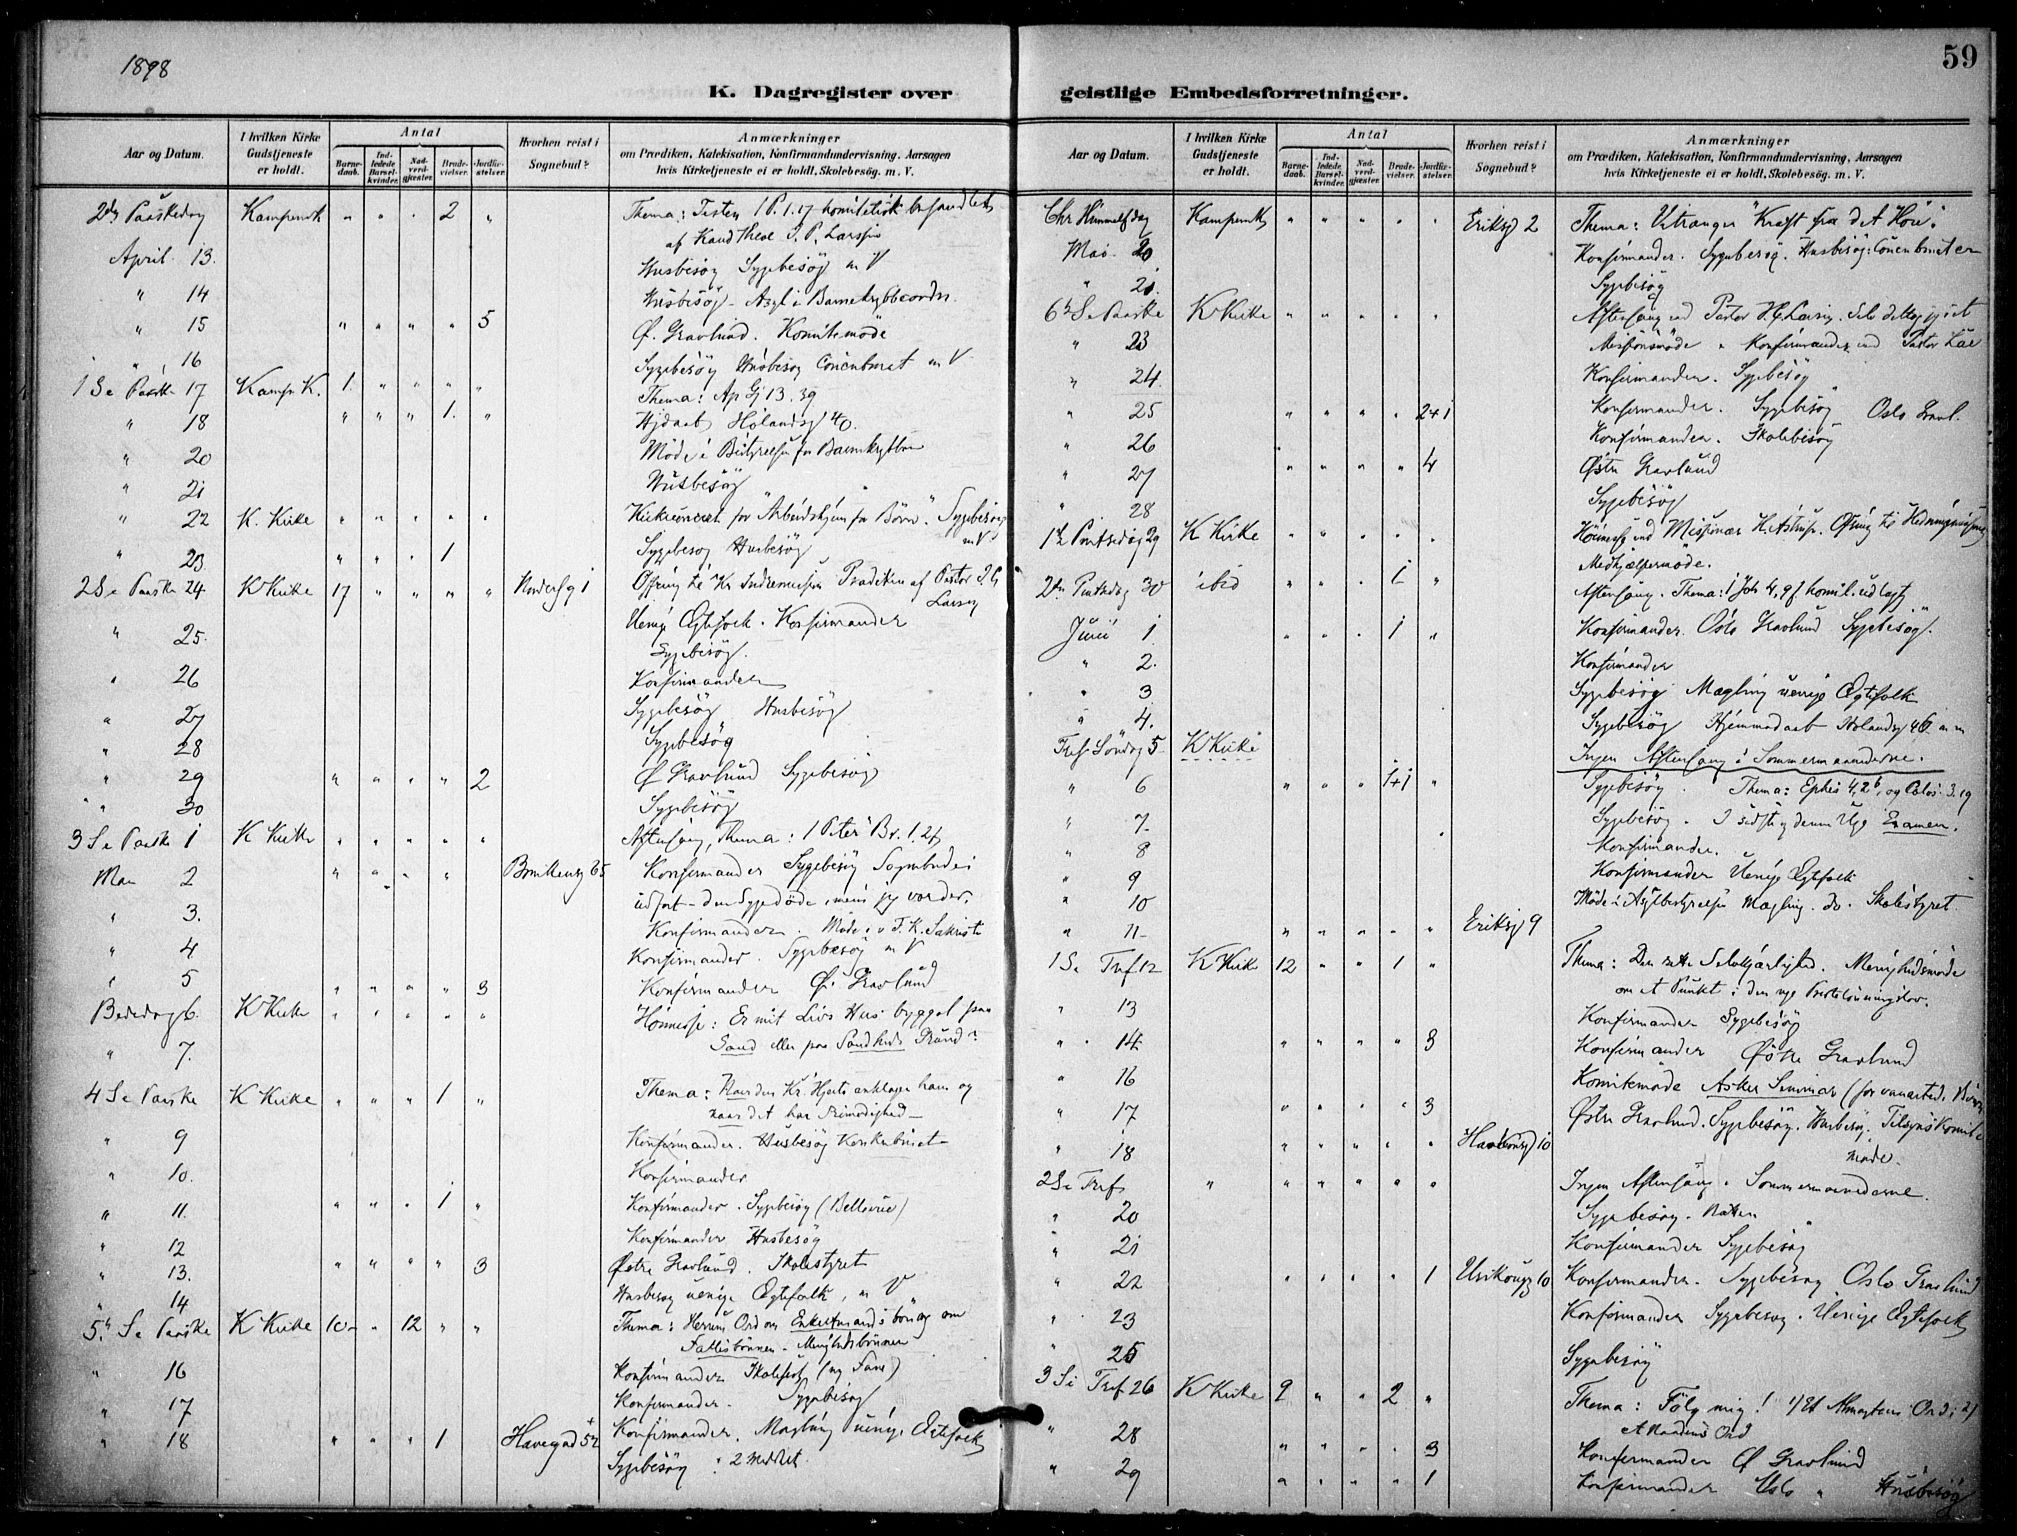 1898
59
K. Dagregister over geistlige Embedsforretninger.
Aar og Datum.
I hvilken Kirke Gudstjeneste er holdt.
Antal
Barnedaab.
Indledede Barselkvinder.
Nadverdgjæster.
Brudevielser.
Jordfæstelser.
Hvorhen reist i Sognebud?
Anmærkninger
om Prædiken, Katekisation, Konfirmandundervisning, Aarsagen
hvis Kirketjeneste ei er holdt, Skolebesøg. m. V.
2den Paaskedag " " " 2 " Thema: Texten 1 P. 1. 17 homiletisk behandlet
af Kand Theol I. P. Larssen
April 13. Husbesøg Sygebesøg m V
" 14 Husbesøg
" 15 " " " " 5 Ø. Gravlund. Komitemøde
" 16 Sygebesøg Husbesøg m V
1 S e Paaske 17 Kamp K. 1. " " " " Thema: Ap Gj 13. 39
" 18 " " " 1. " Hjdaab Hølandsg 40.
" 20 Møde i Bestyrelsen for
" 21 Husbesøg
" 22 K. Kirke " " " " " Kirkeconcert for "Arbeidshjem for Børn". Sygebesøg
m V
" 23 " " " 1 Sygebesøg Husbesøg
2 S e Paaske 24 K Kirke 17 " " " " 1 Ofring til Kr Indremission Prædiken af Pastor
Larsen
" 25. Uenige Ægtefolk. Konfirmander
Sygebesøg.
" 26 Konfirmander
" 27 Sygebesøg Husbesøg
" 28 Sygebesøg
" 29 " " " " 2 Ø Gravlund Sygebesøg
" 30 Sygebesøg
3 S e Paaske 1 K Kirke " " " " " Aftensang, Thema: 1 Peter Br. 1. 2
Mai 2 " " " " 65 Konfirmander Sygebesøg Sognebud ei
udført - den Syge døde, mens jeg var der.
" 3. Konfirmander. Møde i
" 4 Konfirmander. Sygebesøg m V
" 5 " " " " 3 Konfirmander Ø. Gravlund
Bededag 6. K Kirke " " " " " Er mit Livs Hus bygget paa
" 7. Sand eller paa Sandheds Grund?
4 S e Paaske K Kirke " " " 1 " Thema: Naar den Kr. Hjerte anklager ham og
naar det har Frimodighed
" 9 Konfirmander. Husbesøg
" 10. Konfirmander
" 11. " " " 1 " Konfirmander. Sygebesøg (Bellevue)
" 12 Konfirmander Husbesøg
" 13. " " " " 3 Østre Gravlund. Skolestyret
" 14 Husbesøg uenige Ægtefolk, m V
5. S e Paaske K Kirke 10 " 12 " " Thema: Herrens Ord om Enkeltmands bøn og om
Fællesbønnen - Menighedsbønnen
" 16 Konfirmander (ny Fane)
" 17 Konfirmander. Sygebesøg
" 18 " " " 1 Havegad 52 Konfirmander. Mægling uenige Ægtefolk
Sygebesøg
Aar og Datum.
I hvilken Kirke Gudstjeneste er holdt.
Antal
Barnedaab.
Indledede Barselkvinder.
Nadverdgjæster.
Brudevielser.
Jordfæstelser.
Hvorhen reist i Sognebud?
Anmærkninger
om Prædiken, Katekisation, Konfirmandundervisning, Aarsagen
hvis Kirketjeneste ei er holdt, Skolebesøg. m. V.
Chr Himmelfdag " " " " " Eriksg 2 Thema: Kraft fra det Høie".
Mai 20 Konfirmander. Sygebesøg. Husbesøg:
" 21. Sygebesøg
6te S e Paaske K Kirke " " " " " Aftensang ved Pastor
" 23 Missionsmøde. Konfirmander ved Pastor
" 24. Konfirmander. Sygebesøg
" 25 " " " " 2+1 Konfirmander. Sygebesøg Oslo Gravl.
" 26 Konfirmander. Skolebesøg
" 27 " " " " 4 Østre Gravlund
" 28 Sygebesøg
1te Pintsedag 29 K Kirke " " " " " Høimesse ved Missionær H. Astrup. Ofring til Hedningmission
Medhjælpermøde.
2den Pintsdag 30 ibid " " " 1 " Aftensang. Thema: 1 Joh 4, 9 f homil. udlagt
Juni 1 " " " 1 " Konfirmander. Oslo Gravlund Sygebesøg.
" 2. Konfirmander
" 3 Sygebesøg Mægling uenige Ægtefolk
" 4. Sygebesøg Hjemmedaab Hølandsg 46
Tref. Søndag 5 K Kirke Ingen Aftensang i Sommermaanederne.
" 6 " " " 1+1 " Sygebesøg. Thema: Ephes 4, 26, og Colos. 3. 19
" 7. Sygebesøg. I sidste og denne Uge Examen.
" 8 Konfirmander.
" 9 Konfirmander Uenige Ægtefolk
" 10 Møde i Asylbestyrelsen Mægling. Do. Skolestyret
" 11 " " " " " Eriksg 9
1 S e Tref 12 K Kirke 12 " " 1 " Thema: Den rette Selvkjærlighed. Menighedsmøde
om et Punkt i den nye Presteløningslov.
" 13 Konfirmander Sygebesøg
" 14 " " " " 3 Konfirmander Østre Gravlund
" 16 Komitemøde Asker Seminar (for vanartede Børn
" 17 " " " " 3 Østre Gravlund. Sygebesøg. Husbesøg. Tilsynskomite
møde.
" 18 " " " " " 10
2 S e Tref " " " " " " Ingen Aftensang i Sommermaanederne.
" 20 Sygebesøg.
" 21 Konfirmander Sygebesøg
" 22 " " " " 1 10 Konfirmander. Sygebesøg Oslo Gravlund
" 23 Konfirmander Sygebesøg. Uenige Ægtefolk
" 25 Sygebesøg
3 S e Tref 26 K Kirke 9 " " 2 " Thema: Følg mig! 1) Et Almagtens Ord; 2)
Et Naadens Ord
" 28 " " " " 3 Konfirmander Ø Gravlund
" 29 " " " " 1 Konfirmander Oslo " Husbesøg